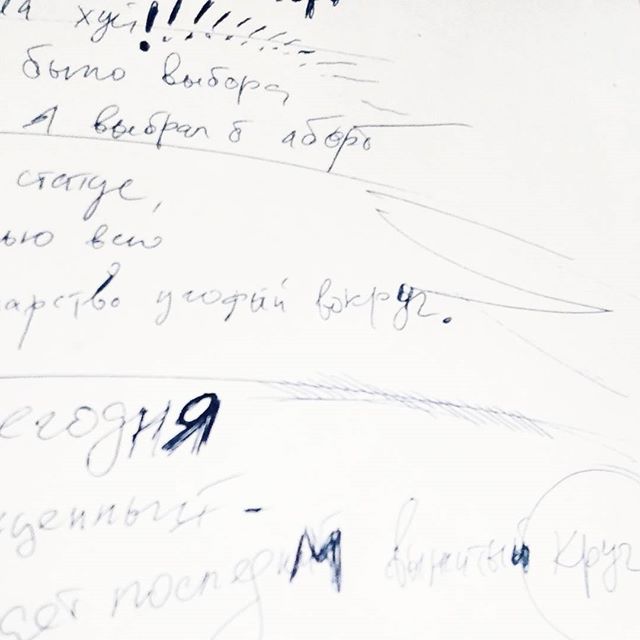 на хуй!!!
было выбора,
А выбрал б аборь
статус,
ью всю
царство угодый вокруг.
сегодня
щенный -
ает последний выжитый круг